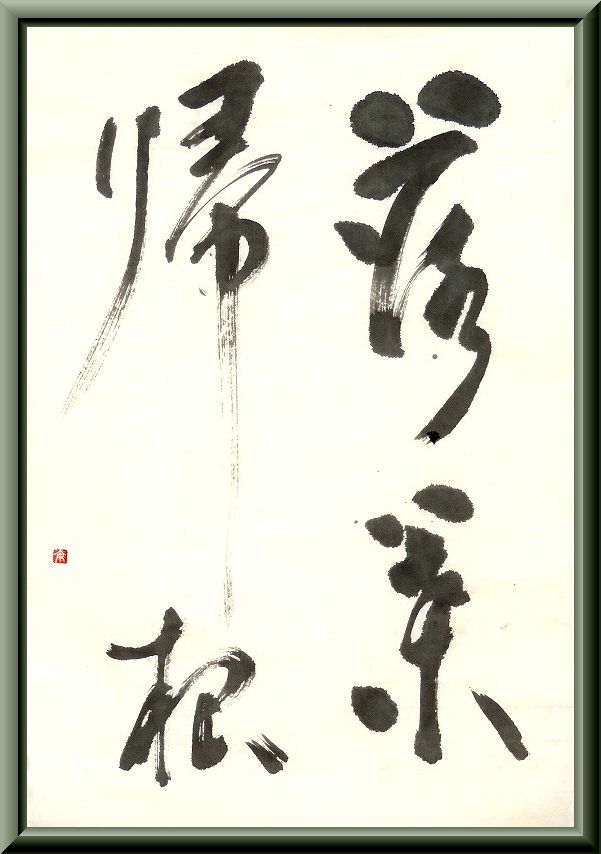 落葉
帰根